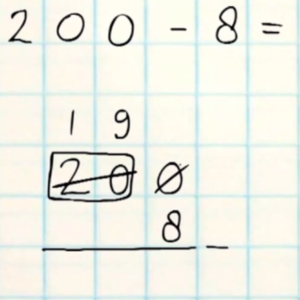 200-8=
19
200
8
_